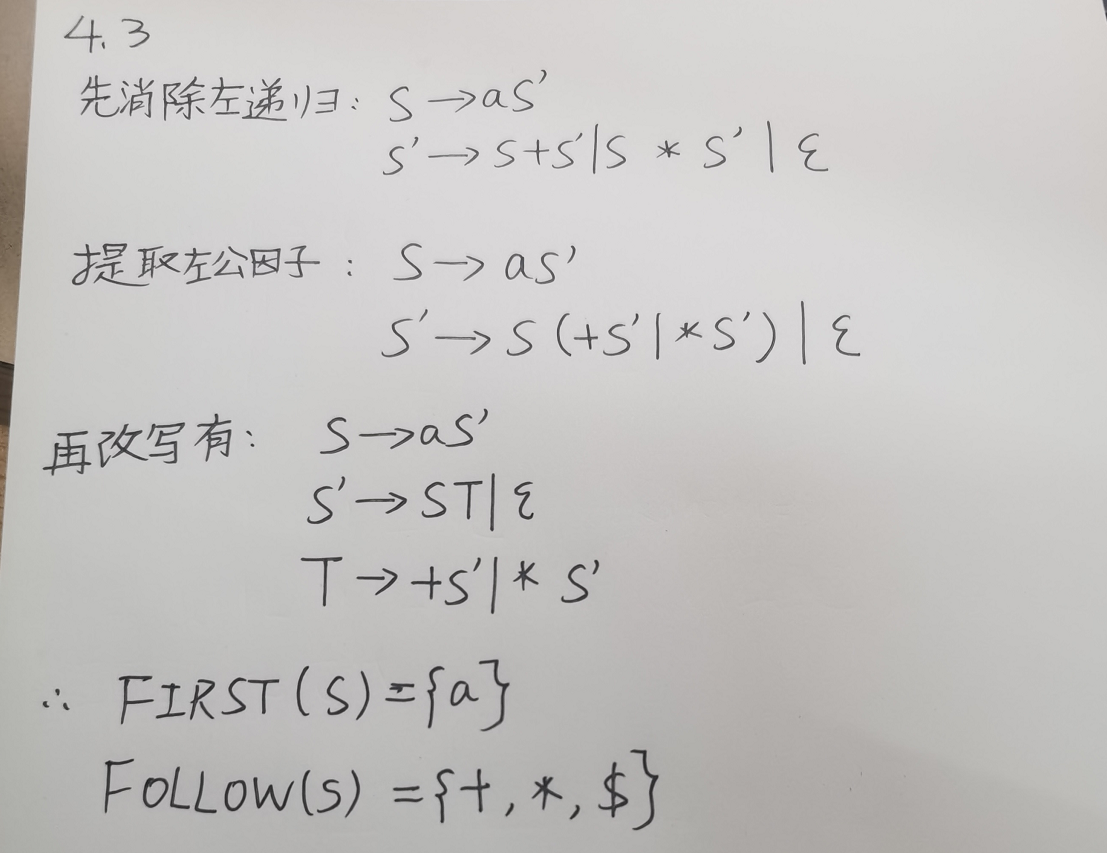 4.3
先消除左递归: S→aS'
S'→S+S'|S * S' | ε
提取左公因子: S→aS'
S'→S(+S'|*S')|ε
再改写有: S→aS'
S'→ST|ε
T→+S'|* S'
∴ FIRST(S)={a}
FOLLOW(S)={+,*,$}